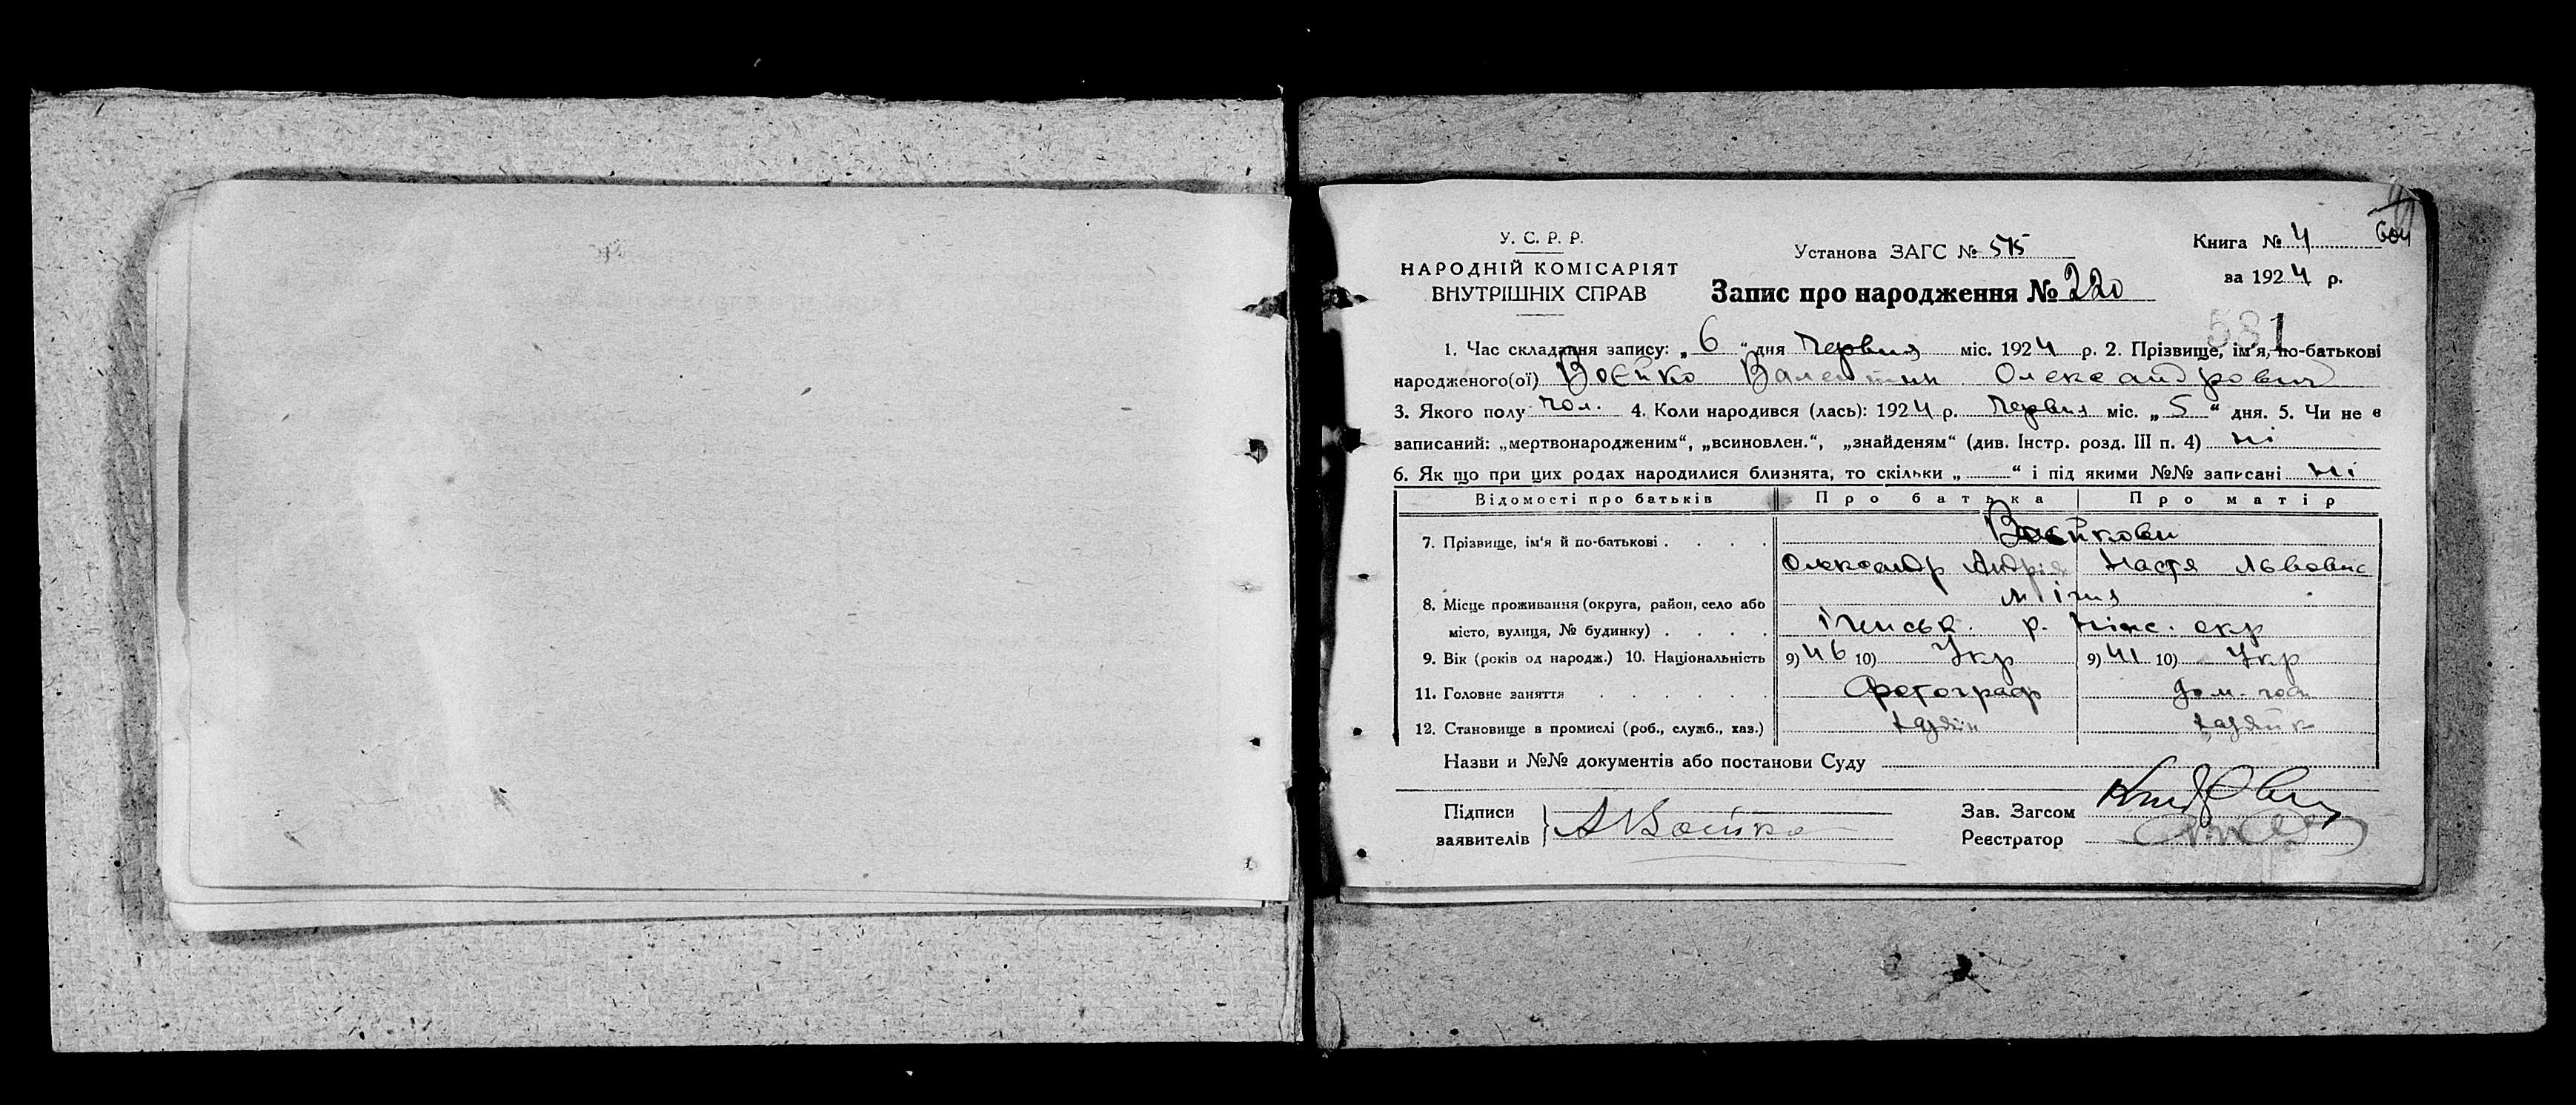 У. С. Р. Р.
НАРОДНІЙ КОМІСАРІЯТ
ВНУТРІШНІХ СПРАВ
Установа ЗАГС № 515
Запис про народження № 220
Книга № 4
604
за 1924 р.
581
1. Час складання запису: „ 6 “ дня червня міс. 1924 р. 2. Прізвище, ім'я, по-батькові
народженого(ої) Воєйко Валентин Олександрович
3. Якого полу чол. 4. Коли народився (лась): 1924 р. червня міс. „ 5 “ дня. 5. Чи не є
записаний: „мертвонародженим“, „всиновлен.“, „знайденям“ (див. Інстр. розд. III п. 4) ні
6. Як що при цих родах народилися близнята, то скільки „ “ і під якими №№ записані ні
Відомості про батьків Про батька Про матір
7. Прізвище, ім'я й по-батькові . . . . Воєйкови
Олександр Андрія Настя Львовна
8. Місце проживання (округа, район, село або
місто, вулиця, № будинку) . . . . м Ічня
Ічнськ. р. Ніжс. окр
9. Вік (років од народж.) 10. Національність 9) 46 10) Укр 9) 41 10) Укр
11. Головне заняття . . . . . . Фотограф дом. гос
12. Становище в промислі (роб., служб., хаз.) хазяїн хазяйк
Назви и №№ документів або постанови Суду
Підписи
заявителів } А Воейко
Зав. Загсом
Реєстратор